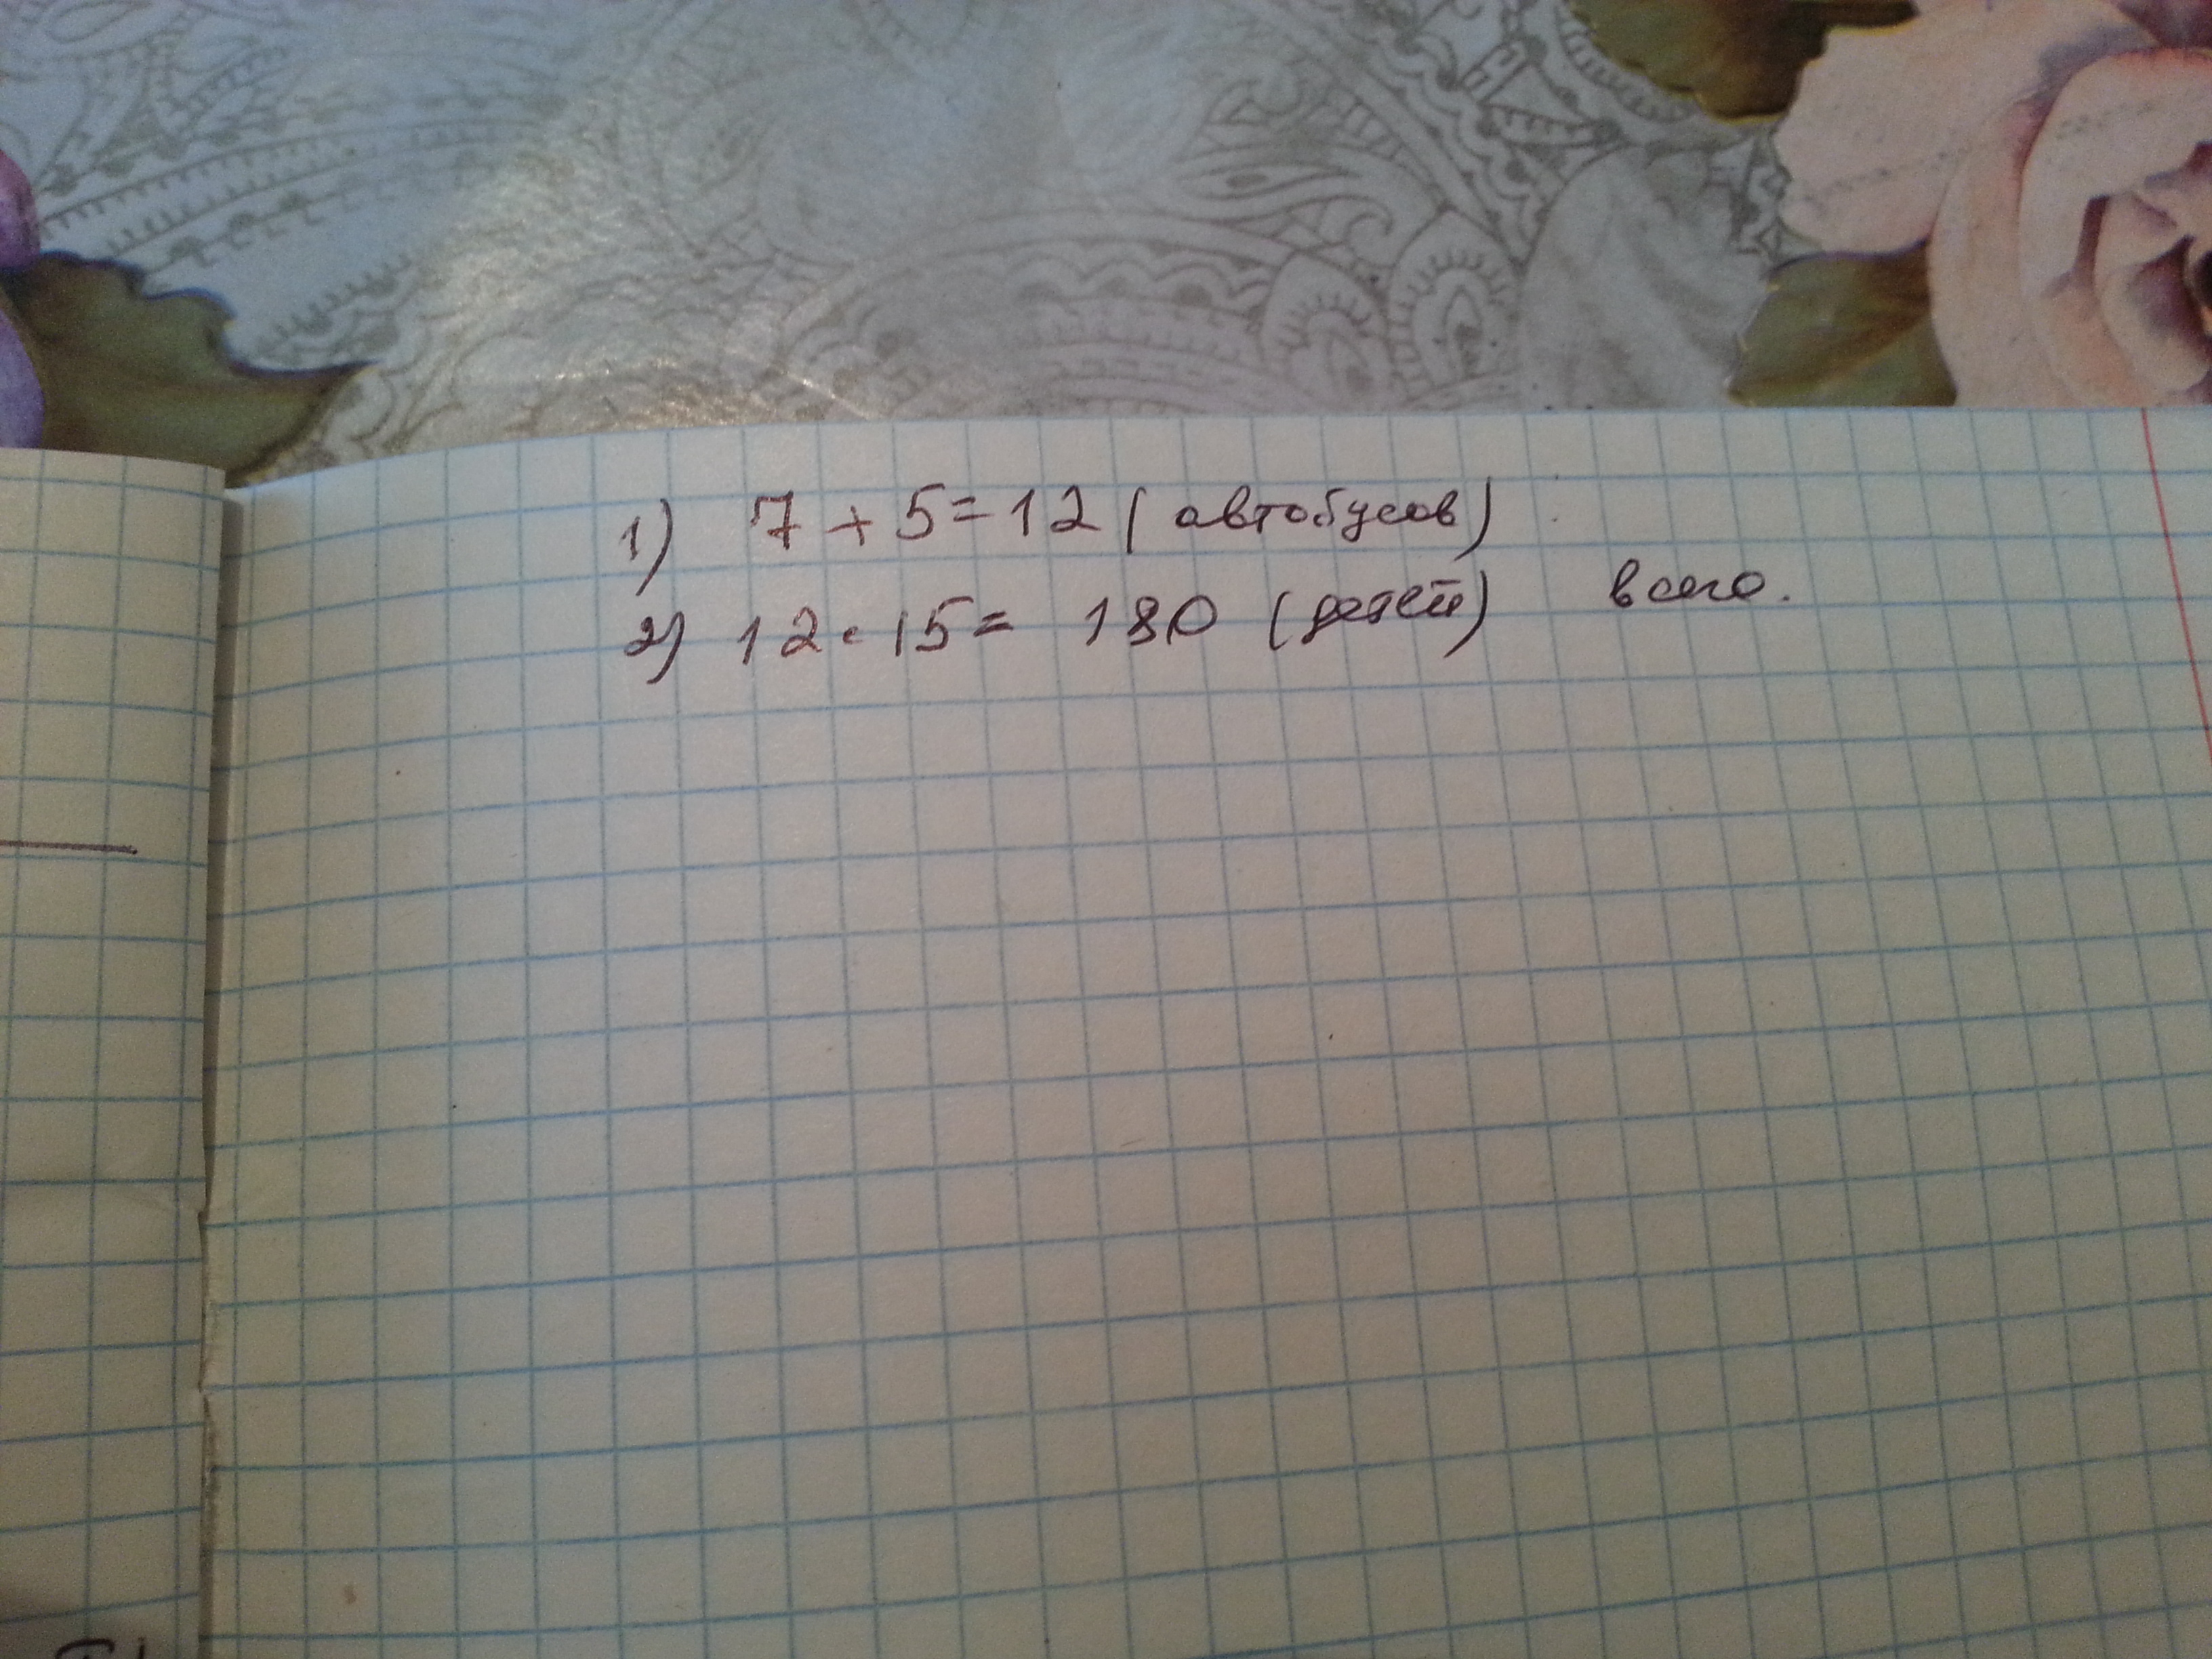 1) 7 + 5 = 12 (автобусов)
2) 12 · 15 = 180 (детей) всего.